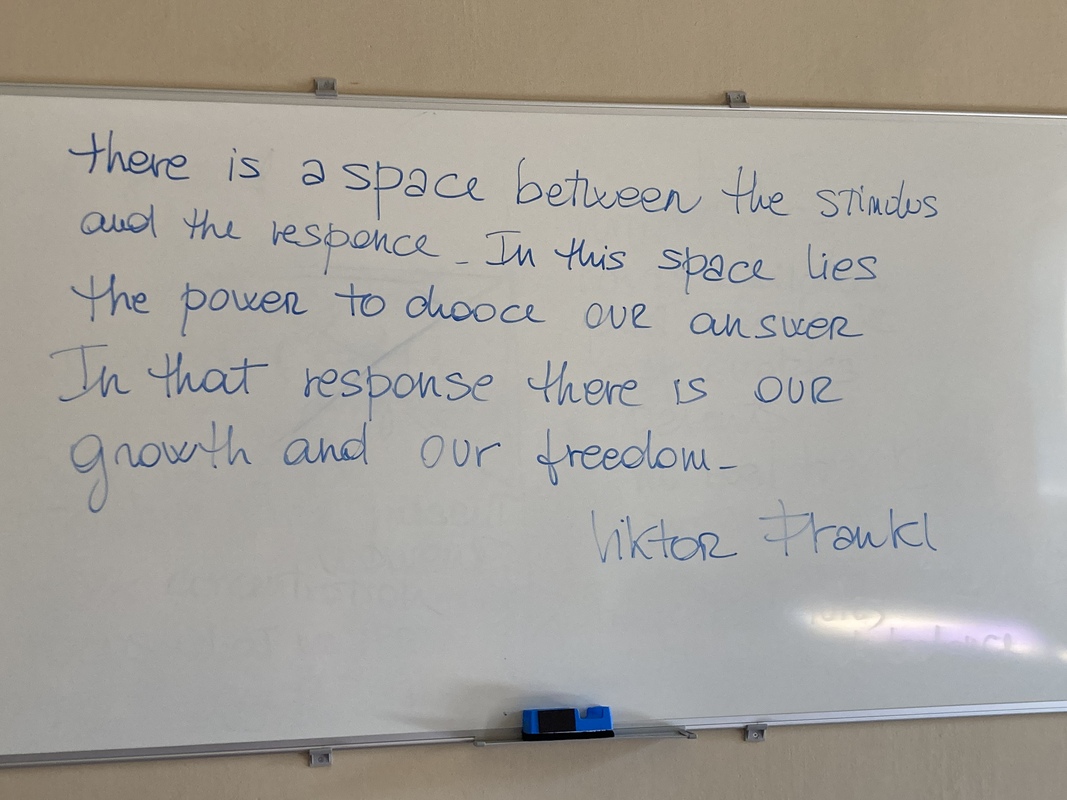 there is a space between the stimulus
and the responce. In this space lies
the power to chooce our answer
In that response there is our
growth and our freedom.
Viktor Frankl